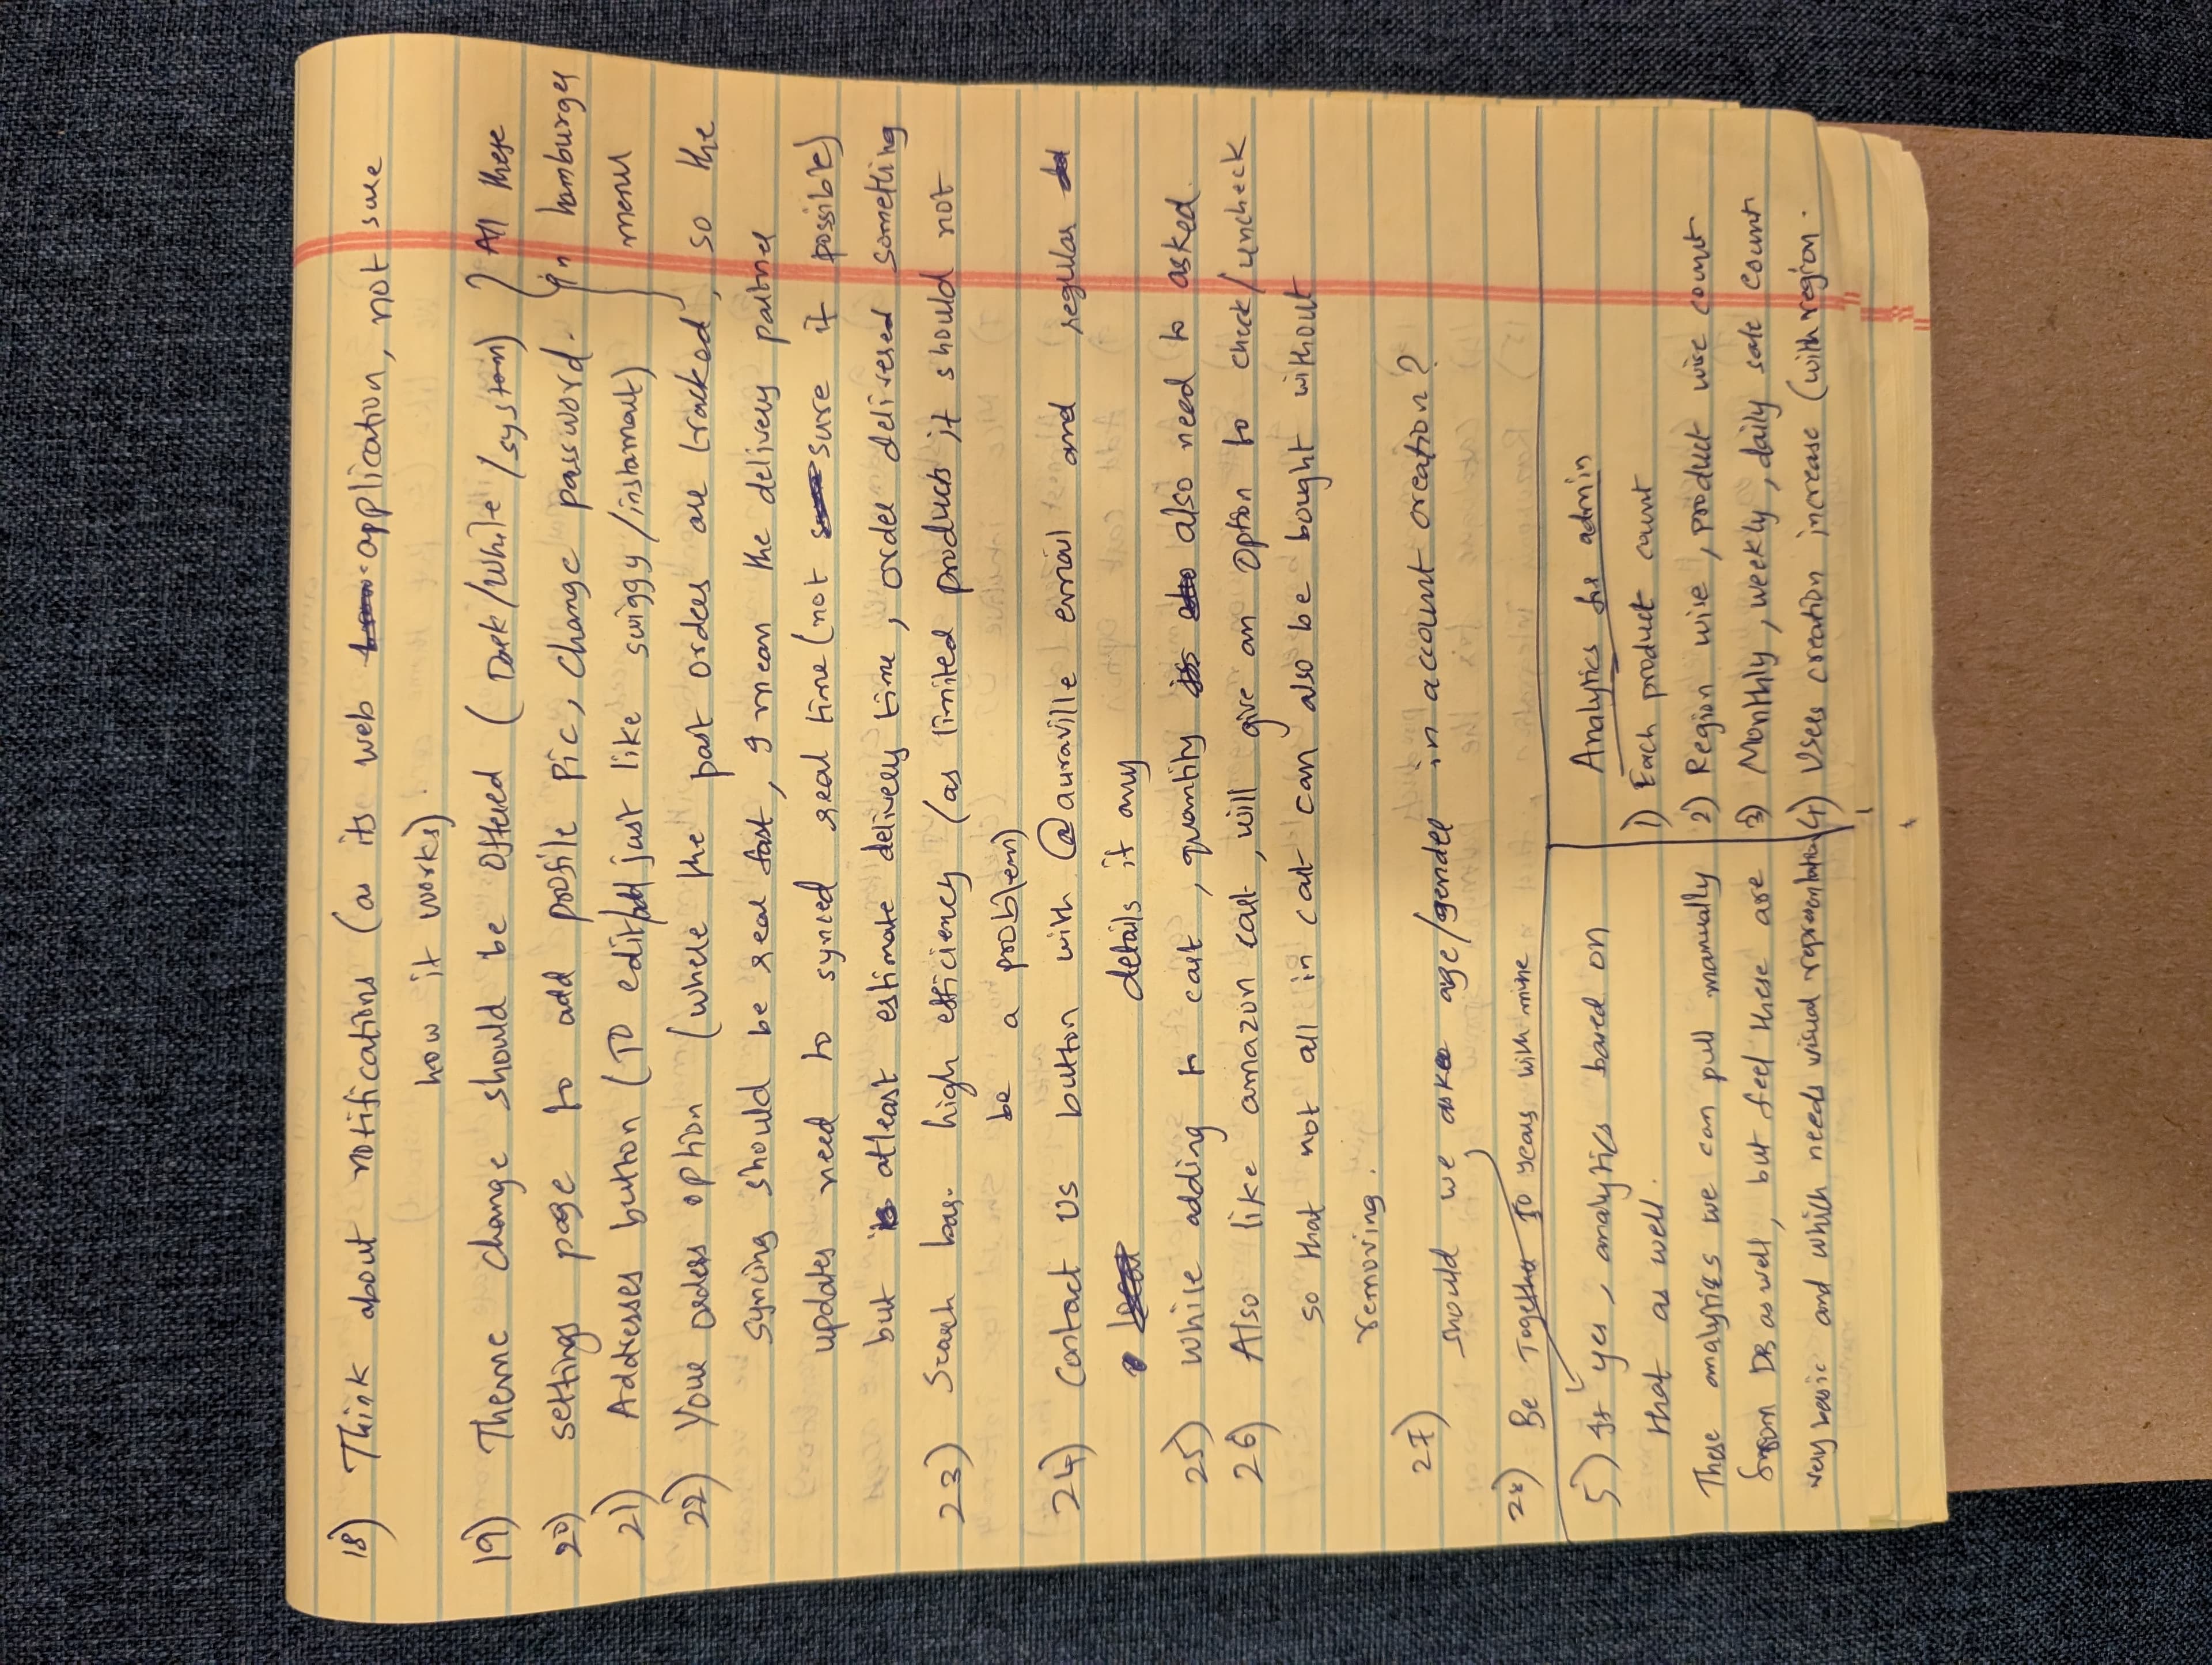 18) Think about notifications (as its web application, not sure
how it works)
19) Theme change should be offered (Dark/White/system) } All these
20) settings page to add profile pic, change password. in hamburger
21) Addresses button (TO edit/add just like swiggy/instamart) menu
22) Your orders option (where the past orders are tracked, so the
syncing should be real fast, I mean the delivery partner
updates need to synced real time (not sure if possible)
but atleast estimate delivery time, order delivered something
23) Search bar high efficiency (as limited products it should not
be a problem)
24) Contact Us button with @auraville email and regular
details if any
25) While adding to cart, quantity also need to asked.
26) Also like amazon cart, will give an option to check/uncheck
so that not all in cart can also be bought without
removing.
27) should we ask age/gender in account creation?
28) Be Together 10 years with mine
5) If yes, analytics based on
that as well.
These analytics we can pull manually
from DB as well, but feel these are
very basic and which needs visual representation
Analytics for admin
1) Each product count
2) Region wise, product wise count
3) Monthly, weekly, daily sale count
4) Users creation increase (with region.